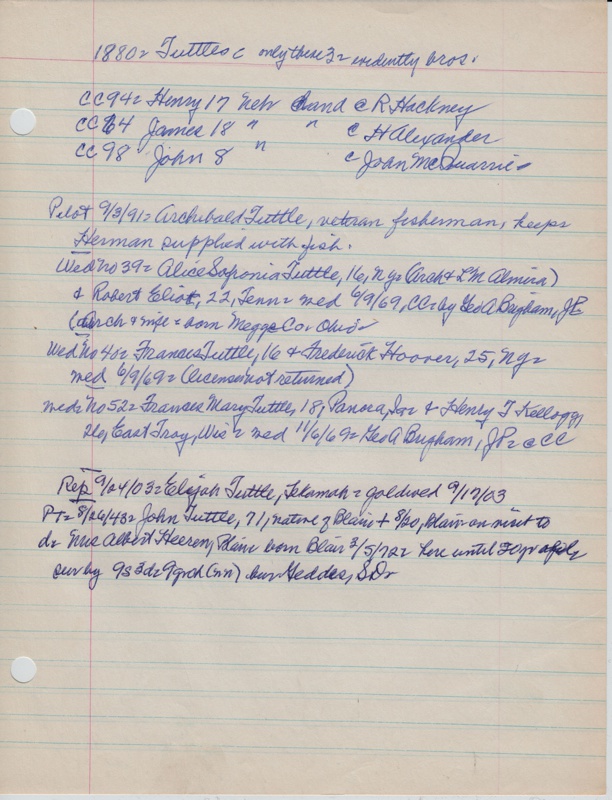 1880= Tuttles c only these 3= evidently bros.
CC94= Henry 17 Neb and c R. Hackney
CC64 James 18 " " c H Alexander
CC98 John 8 " c Joan McQuarrie
Pilot 9/3/91= Archibald Tuttle, veteran fisherman, keeps
Herman supplied with fish.
Wed No 39= Alice Sofronia Tuttle, 16, Ny= (Arch & L M Almira)
& Robert Eliot, 22, Tenn= med 6/9/69, CC= by Geo A Brigham, JP.
(Arch & wife = born Co. Ohio
Wed No 40= Frances Tuttle, 16 & Frederick Hoover, 25, Ny=
med 6/9/69= (License not returned)
Med= No 52= Frances Mary Tuttle, 18, Panora, Ia= & Henry T Kellogg,
26, East Troy, Wis= med 11/6/69= Geo A Brigham, JP= c CC
Rep 9/24/03= Elijah Tuttle, Tekamah = goldwed 9/17/03
PT= 8/26/43= John Tuttle, 71, native of Blair + 8/20, Blair on visit to
d= Mrs Albert Heeren, Blair born Blair 3/5/72= here until 20yr
sur by 9s 3d= 9grch (nn) bur Geddes, SD=